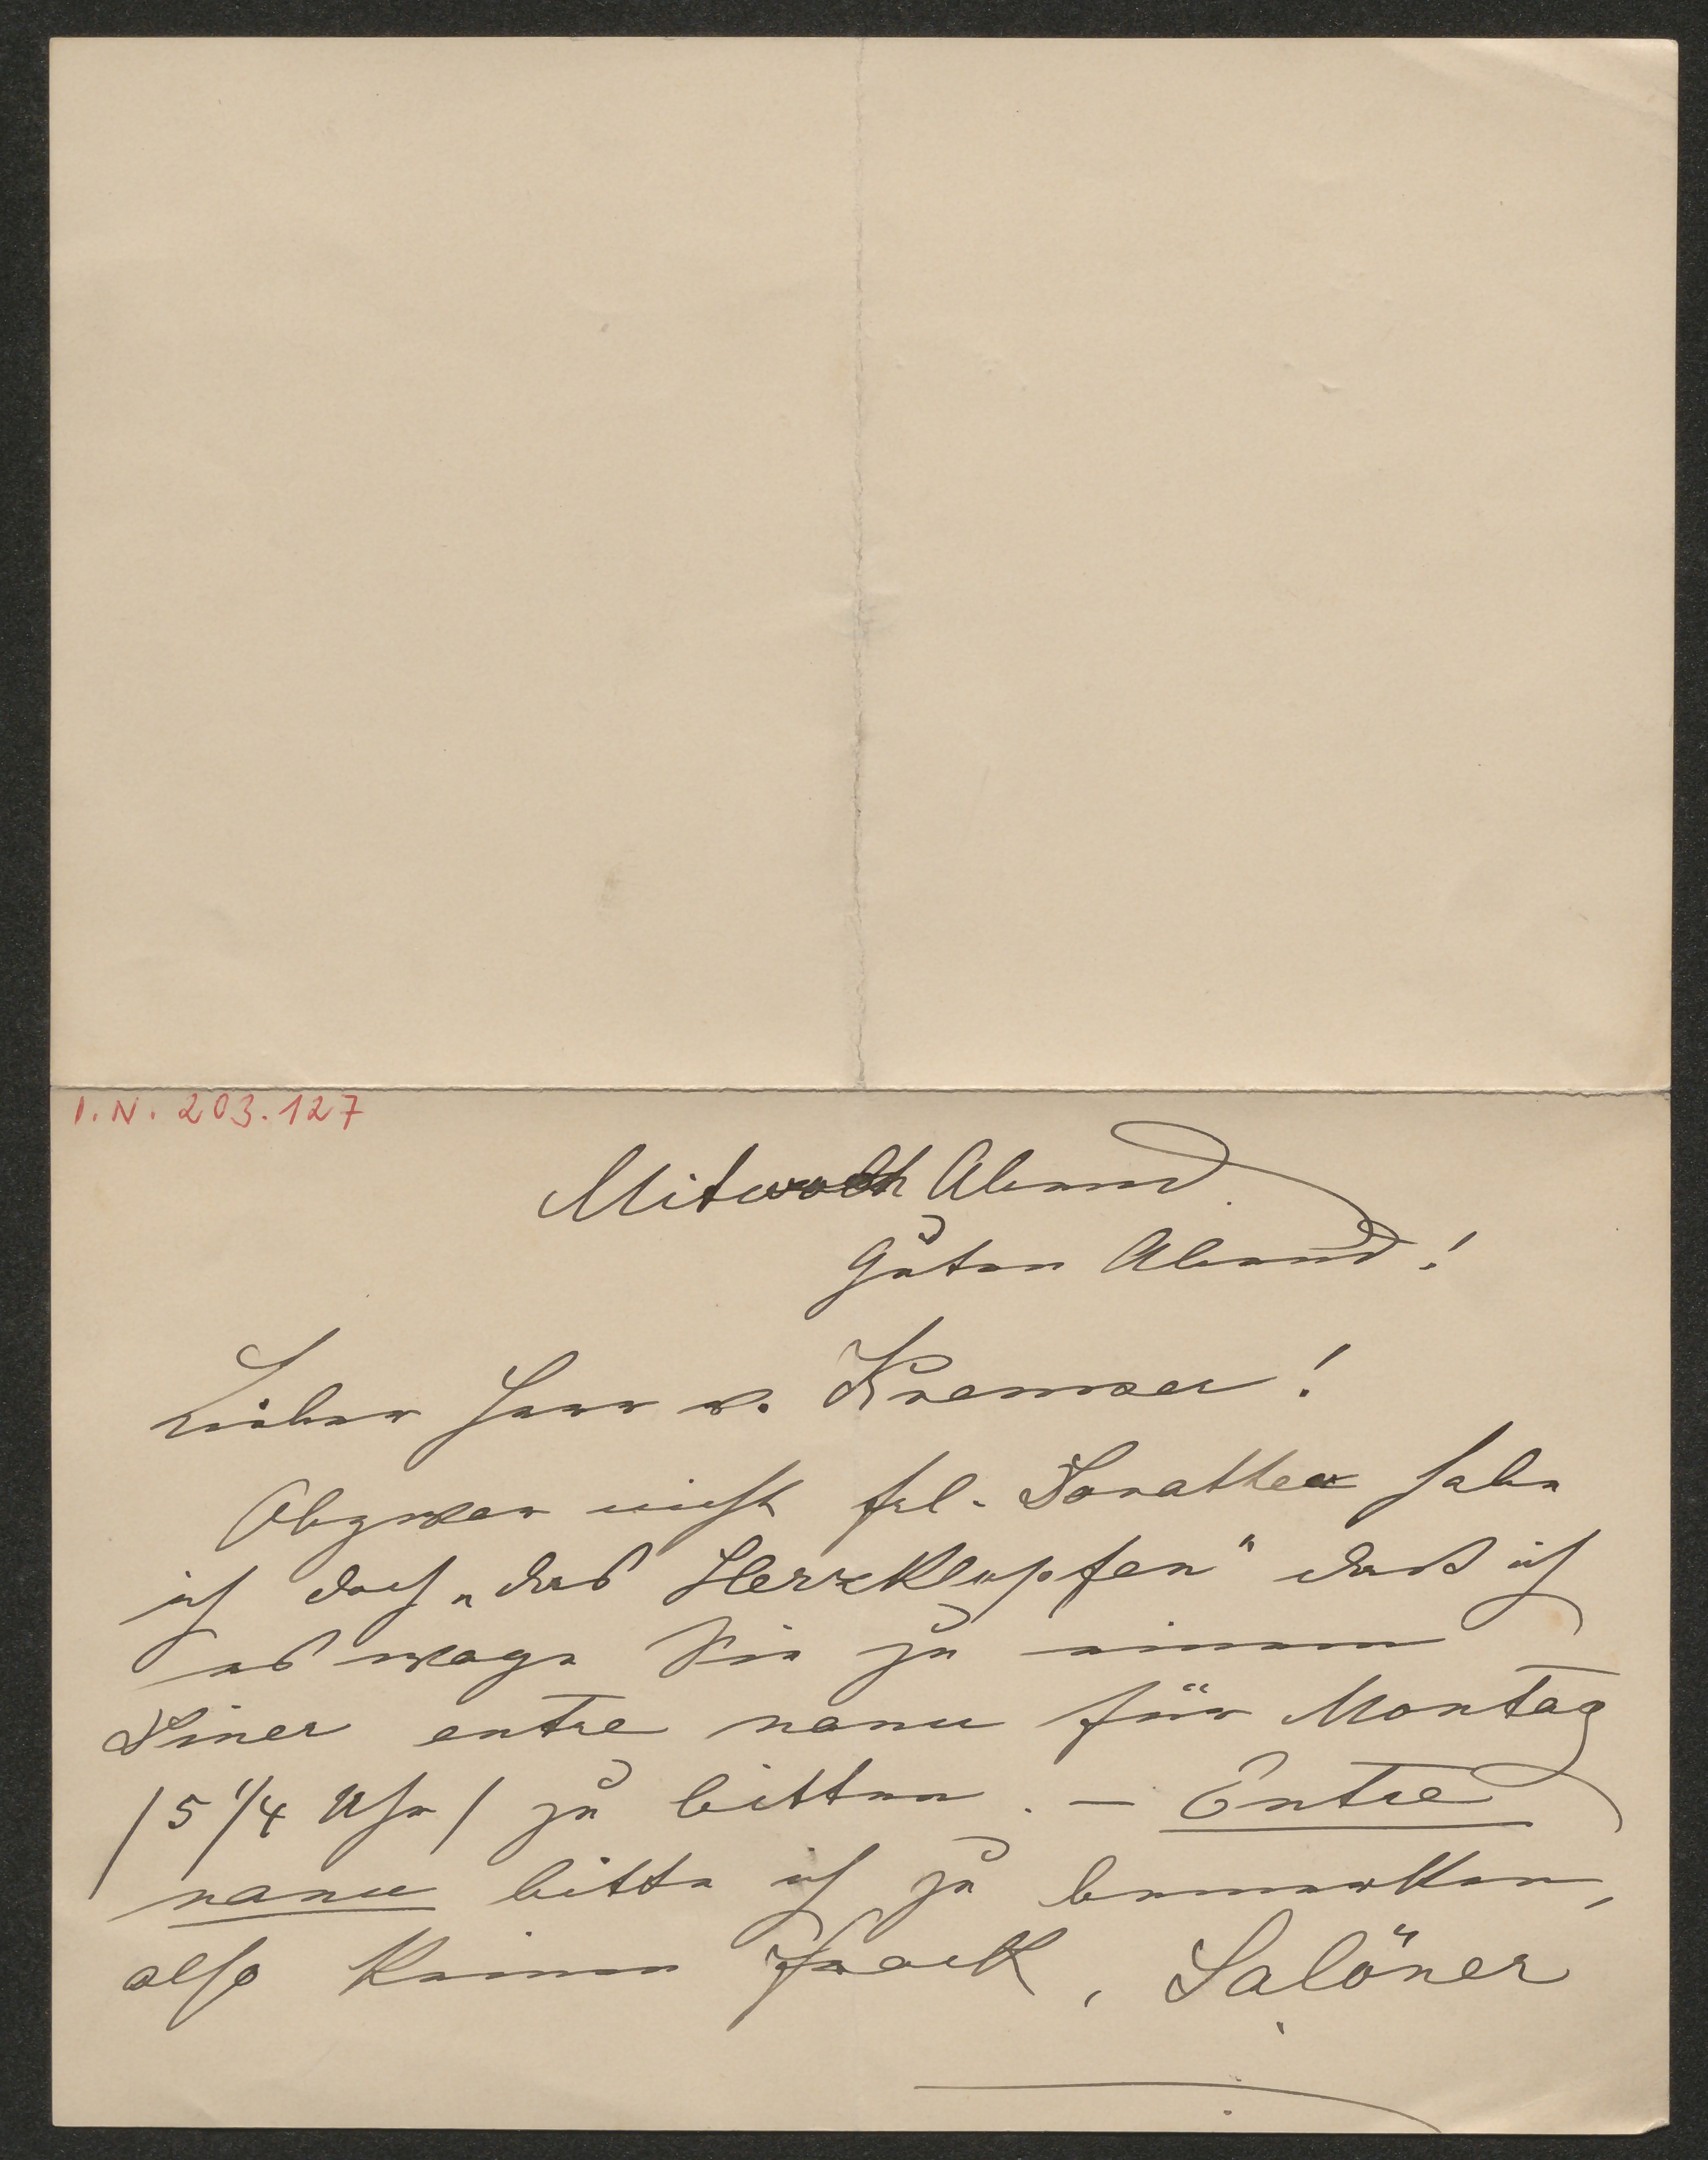 I.N. 203.127
Mitwoch Abend.
Guten Abend!
Lieber Herr v. Kremser!
Obzwar nicht frl. Dorathea habe
ich doch „das Herzklopfen“ daß ich
es wage Sie zu einem
Diner entre nanu für Montag
/5 1/4 Uhr/ zu bitten. – Entre
nanu bitte ich zu bemerken,
also keinen Frack, Salöner